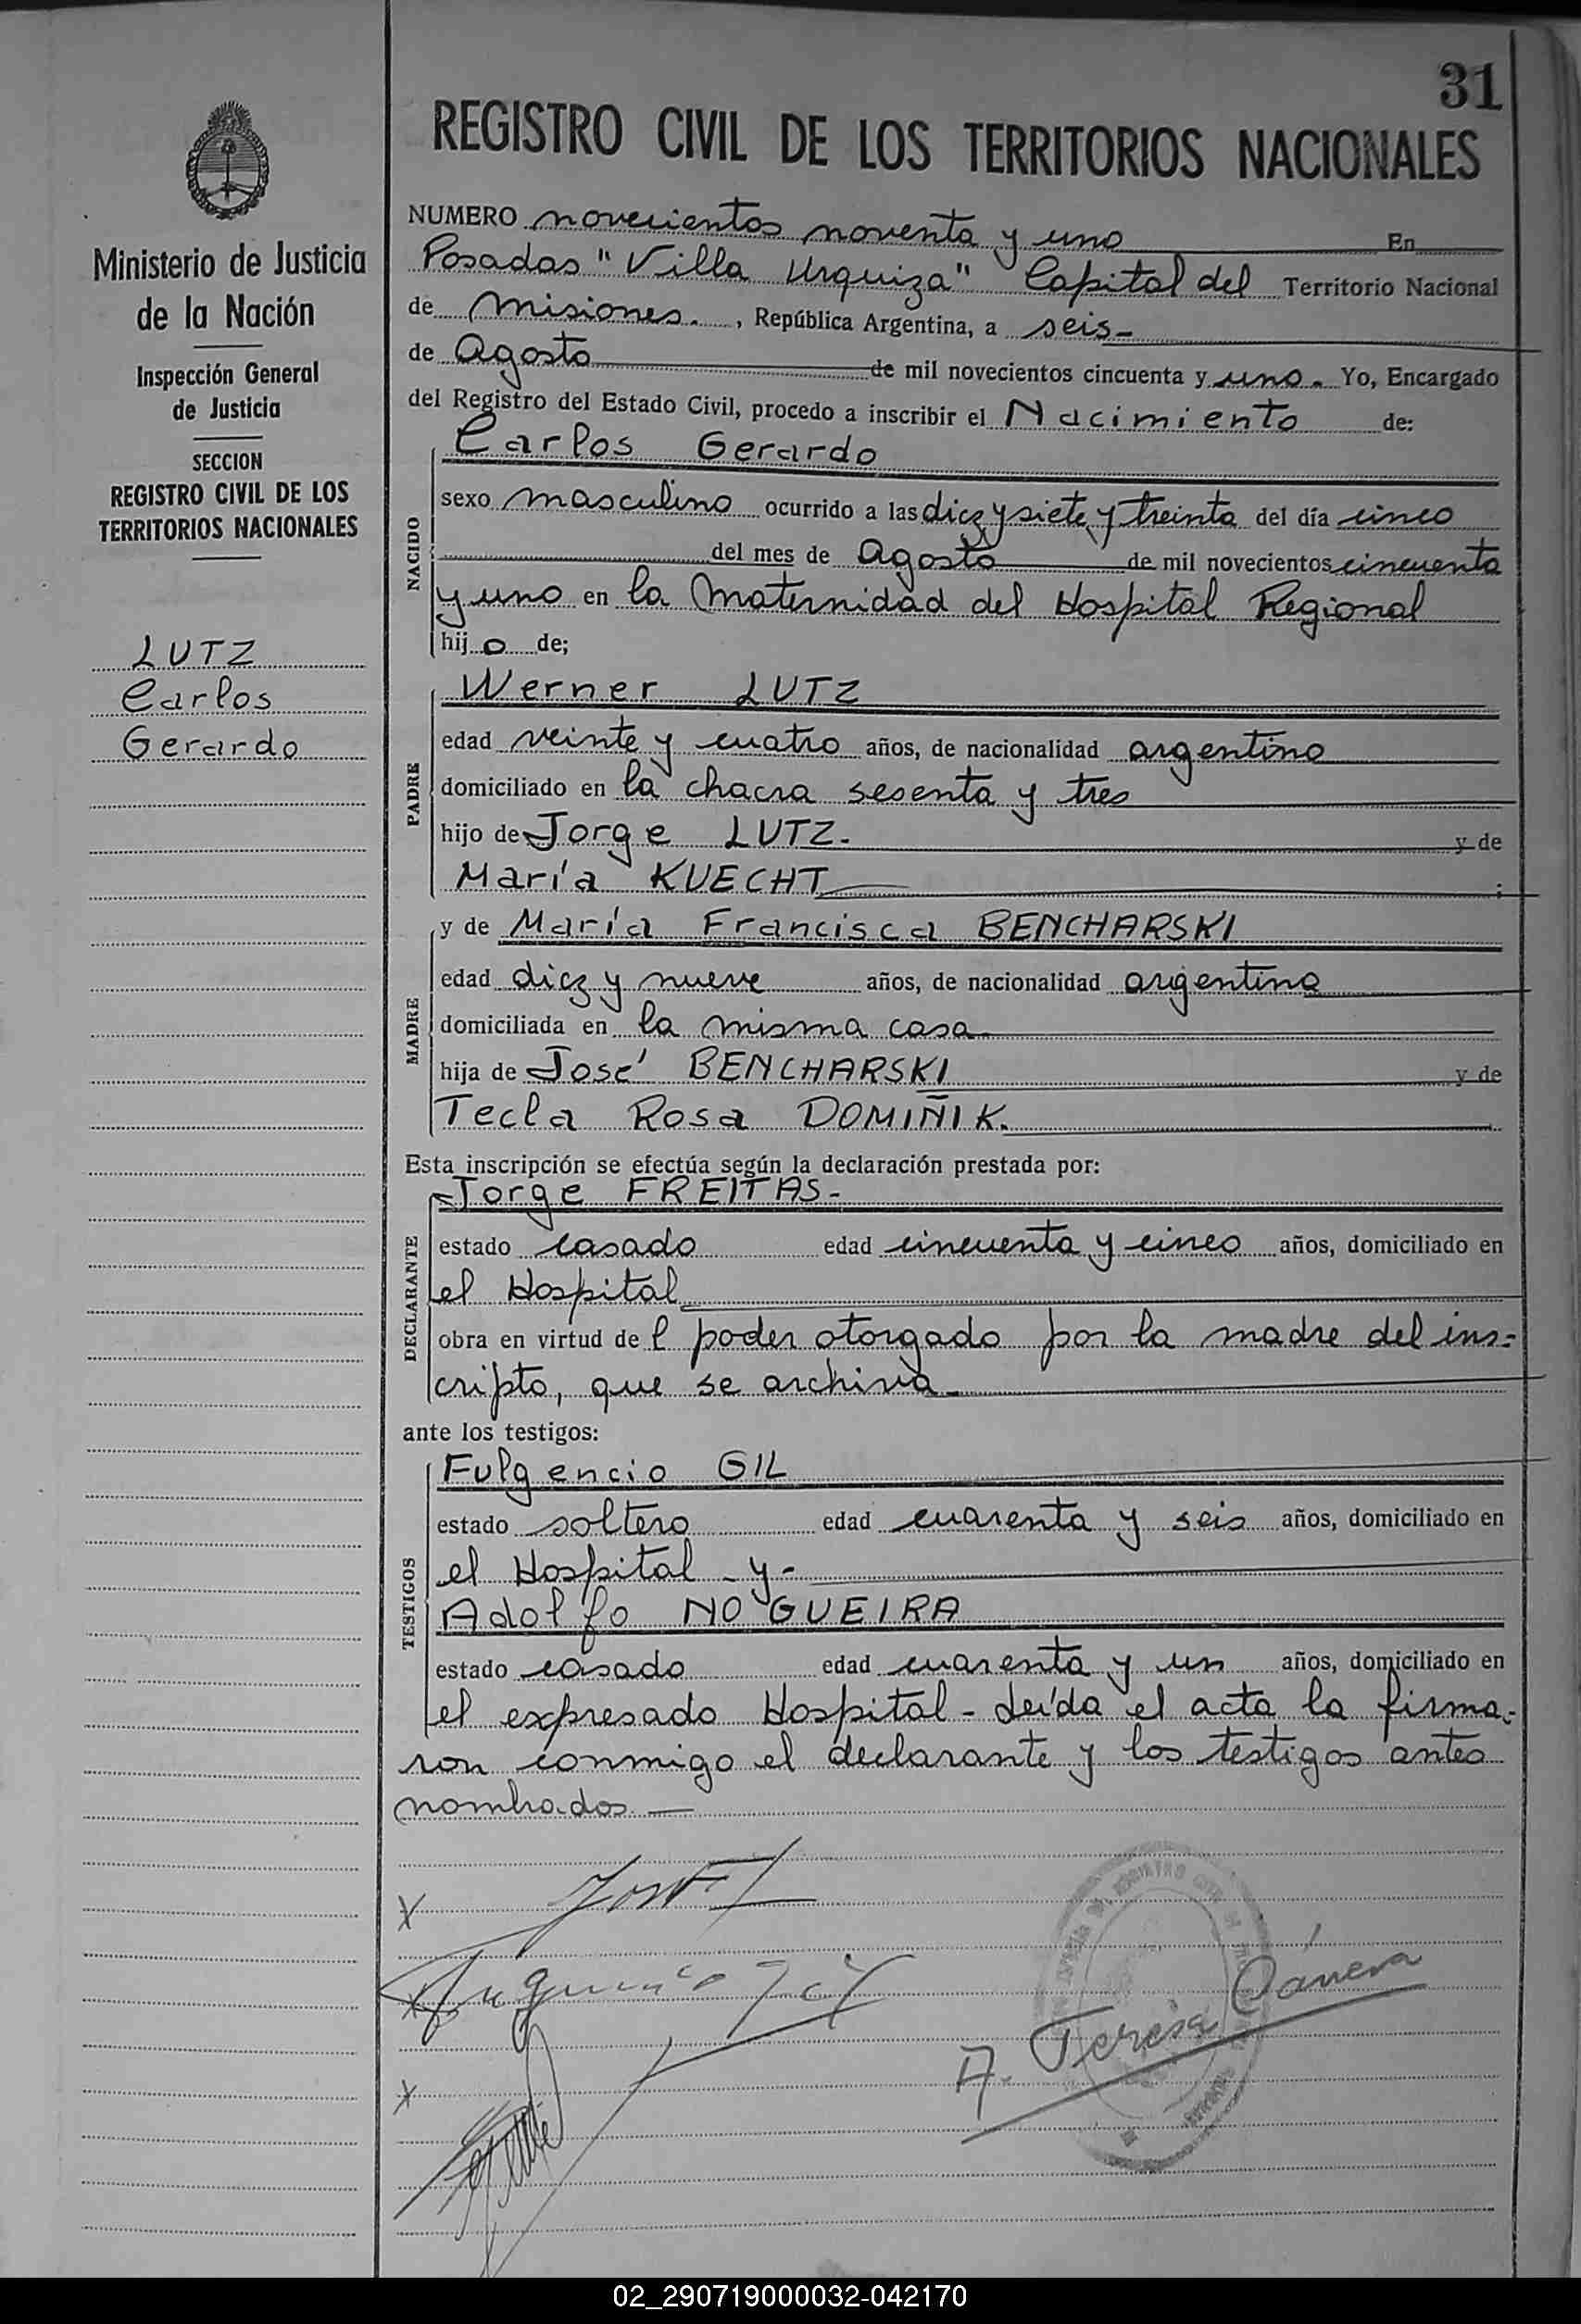 31
REGISTRO CIVIL DE LOS TERRITORIOS NACIONALES
Ministerio de Justicia
de la Nación
Inspección General
de Justicia
SECCION
REGISTRO CIVIL DE LOS
TERRITORIOS NACIONALES
LUTZ
Carlos
Gerardo
NUMERO novecientos noventa y uno En
Posadas "Villa Urquiza" Capital del Territorio Nacional
de Misiones. , República Argentina, a seis-
de Agosto de mil novecientos cincuenta y uno. Yo, Encargado
del Registro del Estado Civil, procedo a inscribir el Nacimiento de:
NACIDO
Carlos Gerardo
sexo masculino ocurrido a las diez y siete y treinta del día cinco
del mes de Agosto de mil novecientos cincuenta
y uno en la Maternidad del Hospital Regional
hijo de;
PADRE
Werner LUTZ
edad veinte y cuatro años, de nacionalidad argentino
domiciliado en la chacra sesenta y tres
hijo de Jorge LUTZ. y de
María KUECHT ;
MADRE
y de María Francisca BENCHARSKI
edad diez y nueve años, de nacionalidad argentina
domiciliada en la misma casa
hija de José BENCHARSKI y de
Tecla Rosa DOMIÑIK.
Esta inscripción se efectúa según la declaración prestada por:
DECLARANTE
Jorge FREITAS-
estado casado edad cincuenta y cinco años, domiciliado en
el Hospital
obra en virtud del poder otorgado por la madre del ins-
cripto, que se archiva
ante los testigos:
TESTIGOS
Fulgencio GIL
estado soltero edad cuarenta y seis años, domiciliado en
el Hospital - y -
Adolfo NOGUEIRA
estado casado edad cuarenta y un años, domiciliado en
el expresado Hospital - Leída el acta la firma-
ron conmigo el declarante y los testigos antes
nombrados. —
X
X
X
A. Teresa
02_290719000032-042170